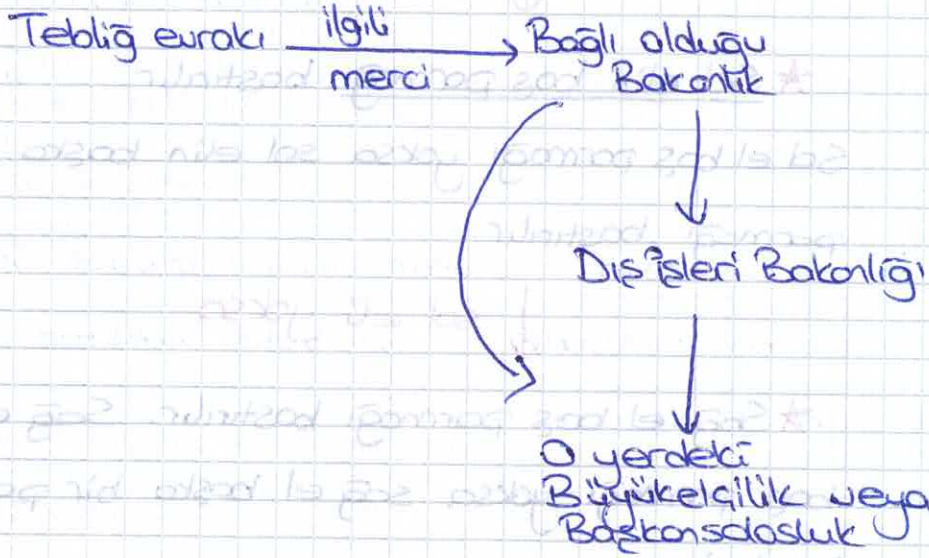 Tebliğ evrakı ilgili Bağlı olduğu
merci Bakanlık
Dış işleri Bakanlığı
O yerdeki
Büyükelçilik veya
Başkonsolosluk